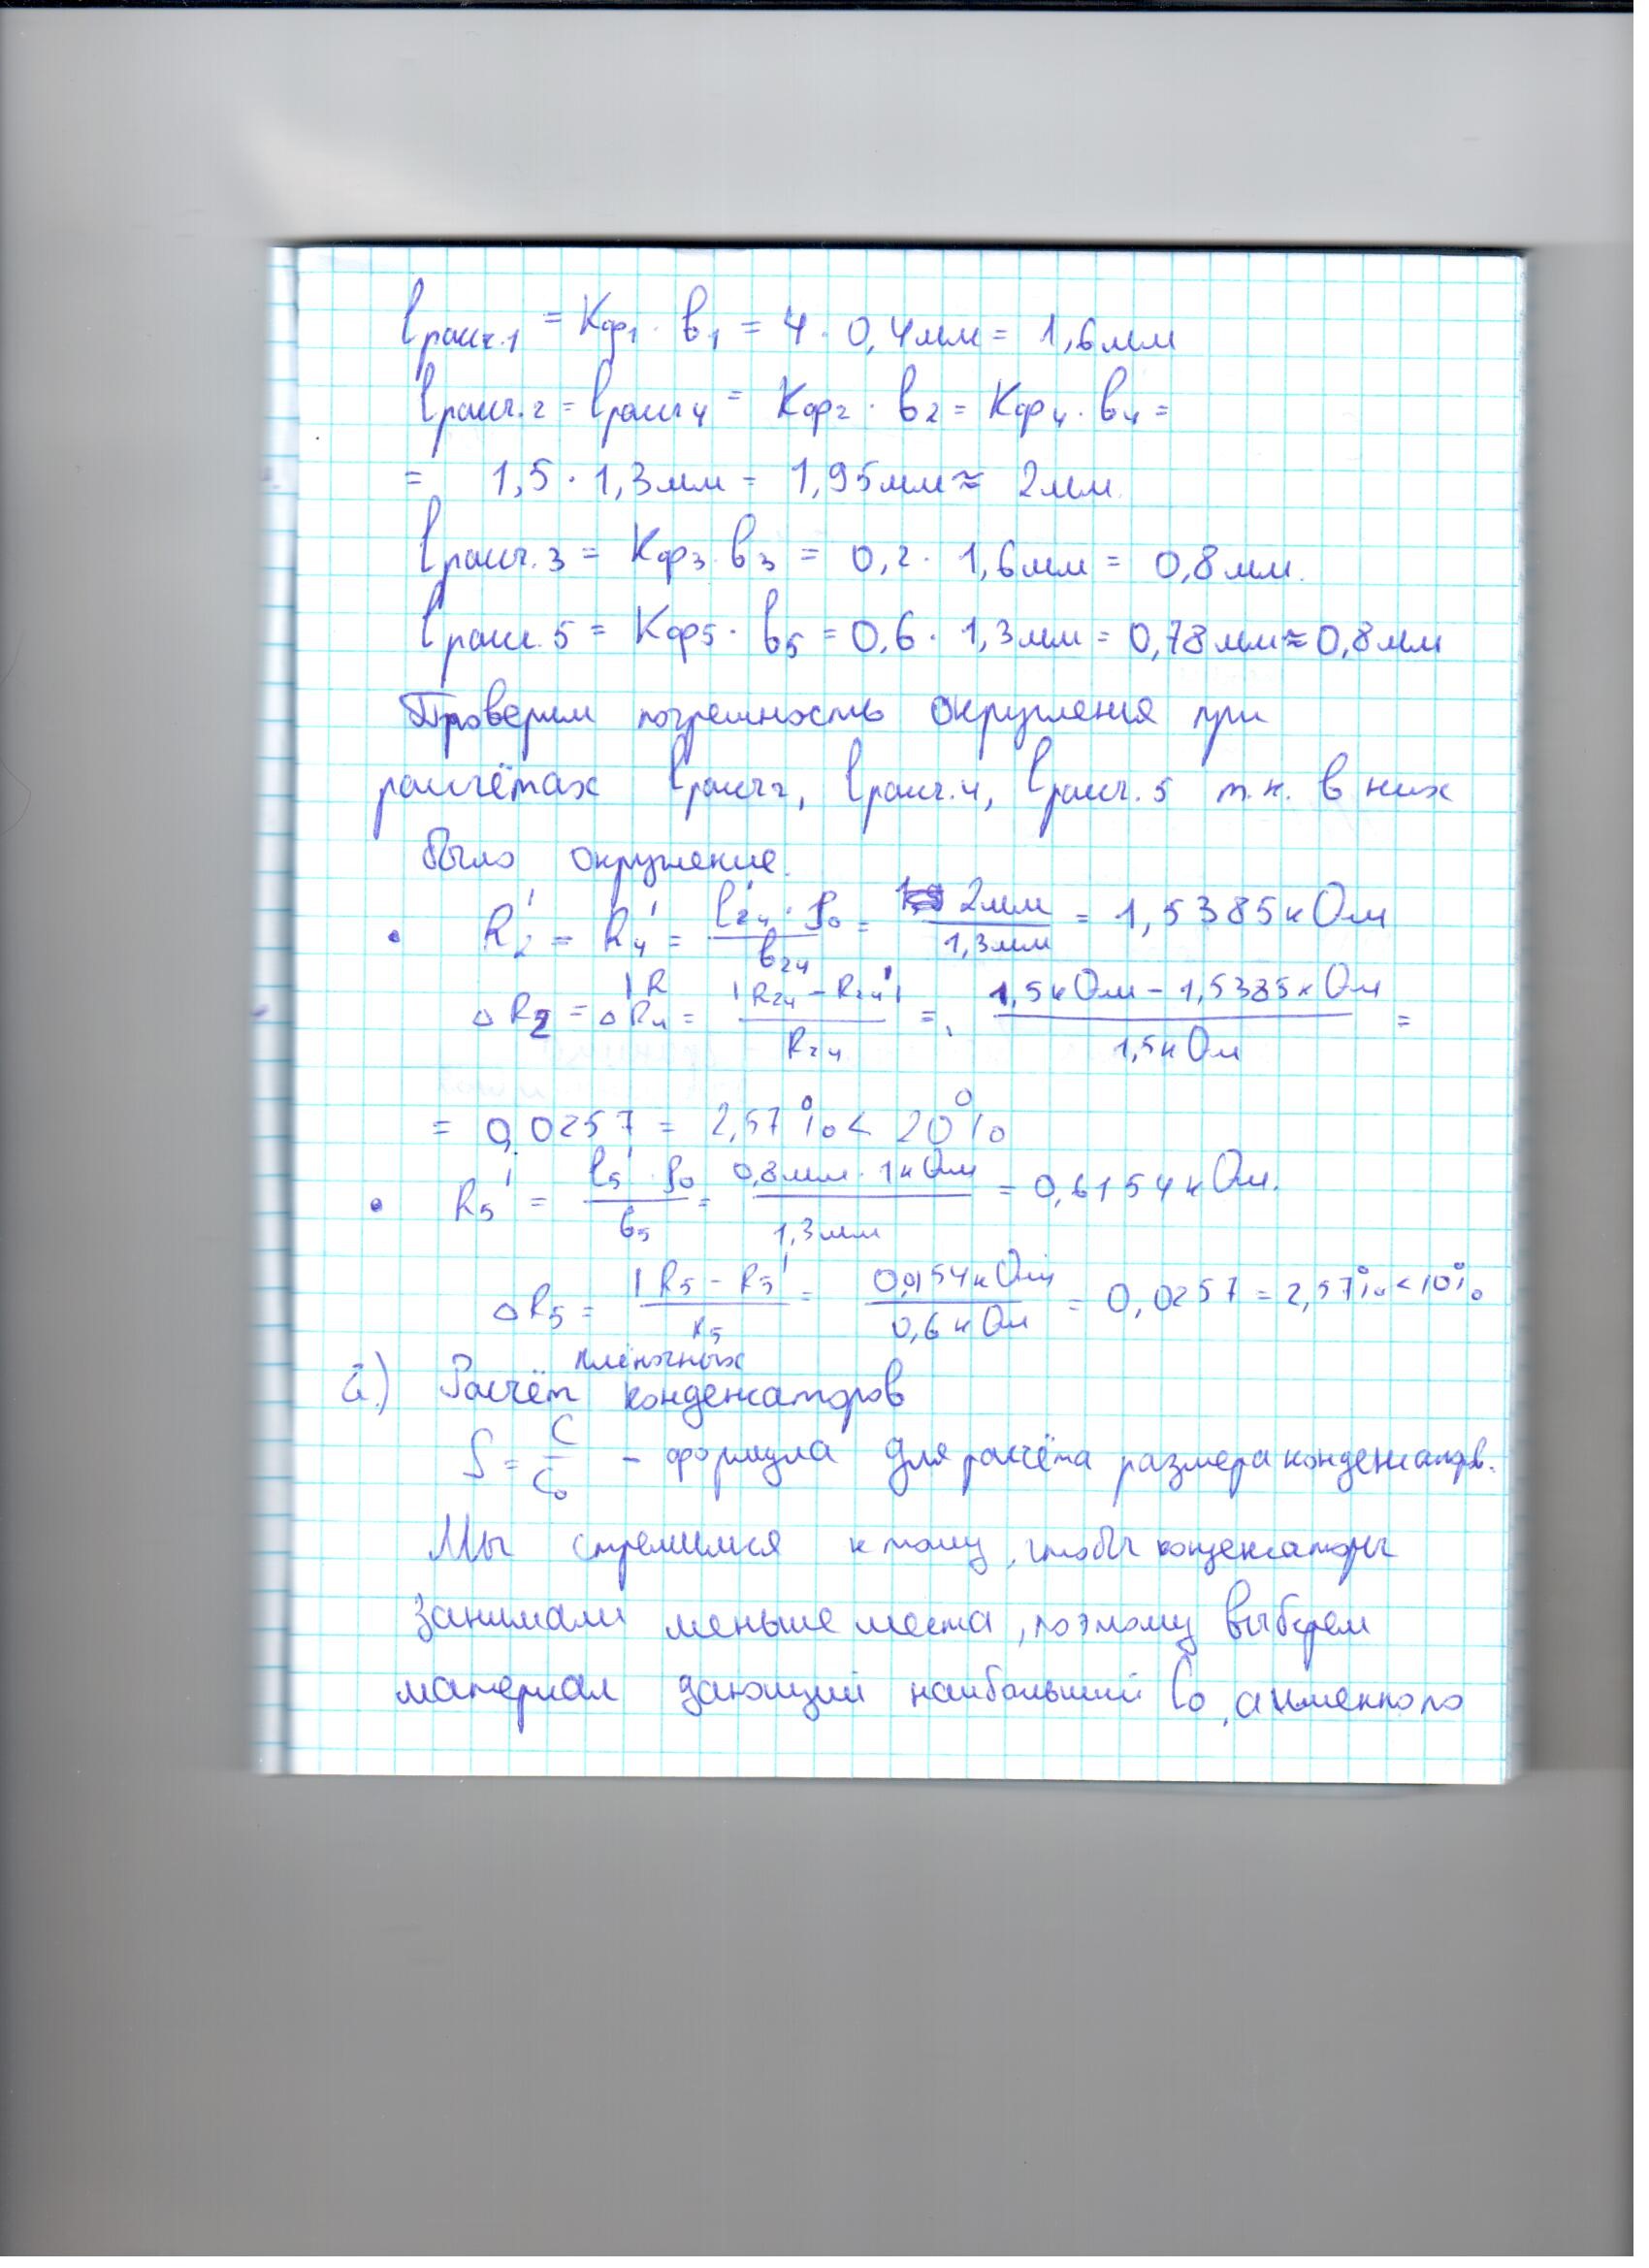 lрасч.1 = Кф1 · в1 = 4 · 0,4мм = 1,6мм
lрасч.2 = lрасч4 = Кф2 · в2 = Кф4 · в4 =
= 1,5 · 1,3мм = 1,95мм ≈ 2мм.
lрасч.3 = Кф3 · в3 = 0,2 · 1,6мм = 0,8мм.
lрасч.5 = Кф5 · в5 = 0,6 · 1,3мм = 0,78мм ≈ 0,8мм
Проверим погрешность округления при
расчётах lрасч2, lрасч.4, lрасч.5 т.к. в них
было округление.
• R2' = R4' = l'24 · ρ0 / в24 = 2мм / 1,3мм = 1,5385кОм
ΔR2 = ΔR4 = |R24 - R24'| / R24 = 1,5кОм - 1,5385кОм / 1,5кОм =
= 0,0257 = 2,57% < 20%
• R5' = l5' · ρ0 / в5 = 0,8мм · 1кОм / 1,3мм = 0,6154кОм.
ΔR5 = |R5 - R5' / R5 = 0,0154кОм / 0,6кОм = 0,0257 = 2,57% < 10%
плёночных
2.) Расчёт конденсаторов
S = C / C0 - формула для расчёта размера конденсаторов.
Мы стремимся к тому, чтобы конденсаторы
занимали меньше места, поэтому выберем
материал дающий наибольший C0, а именно по